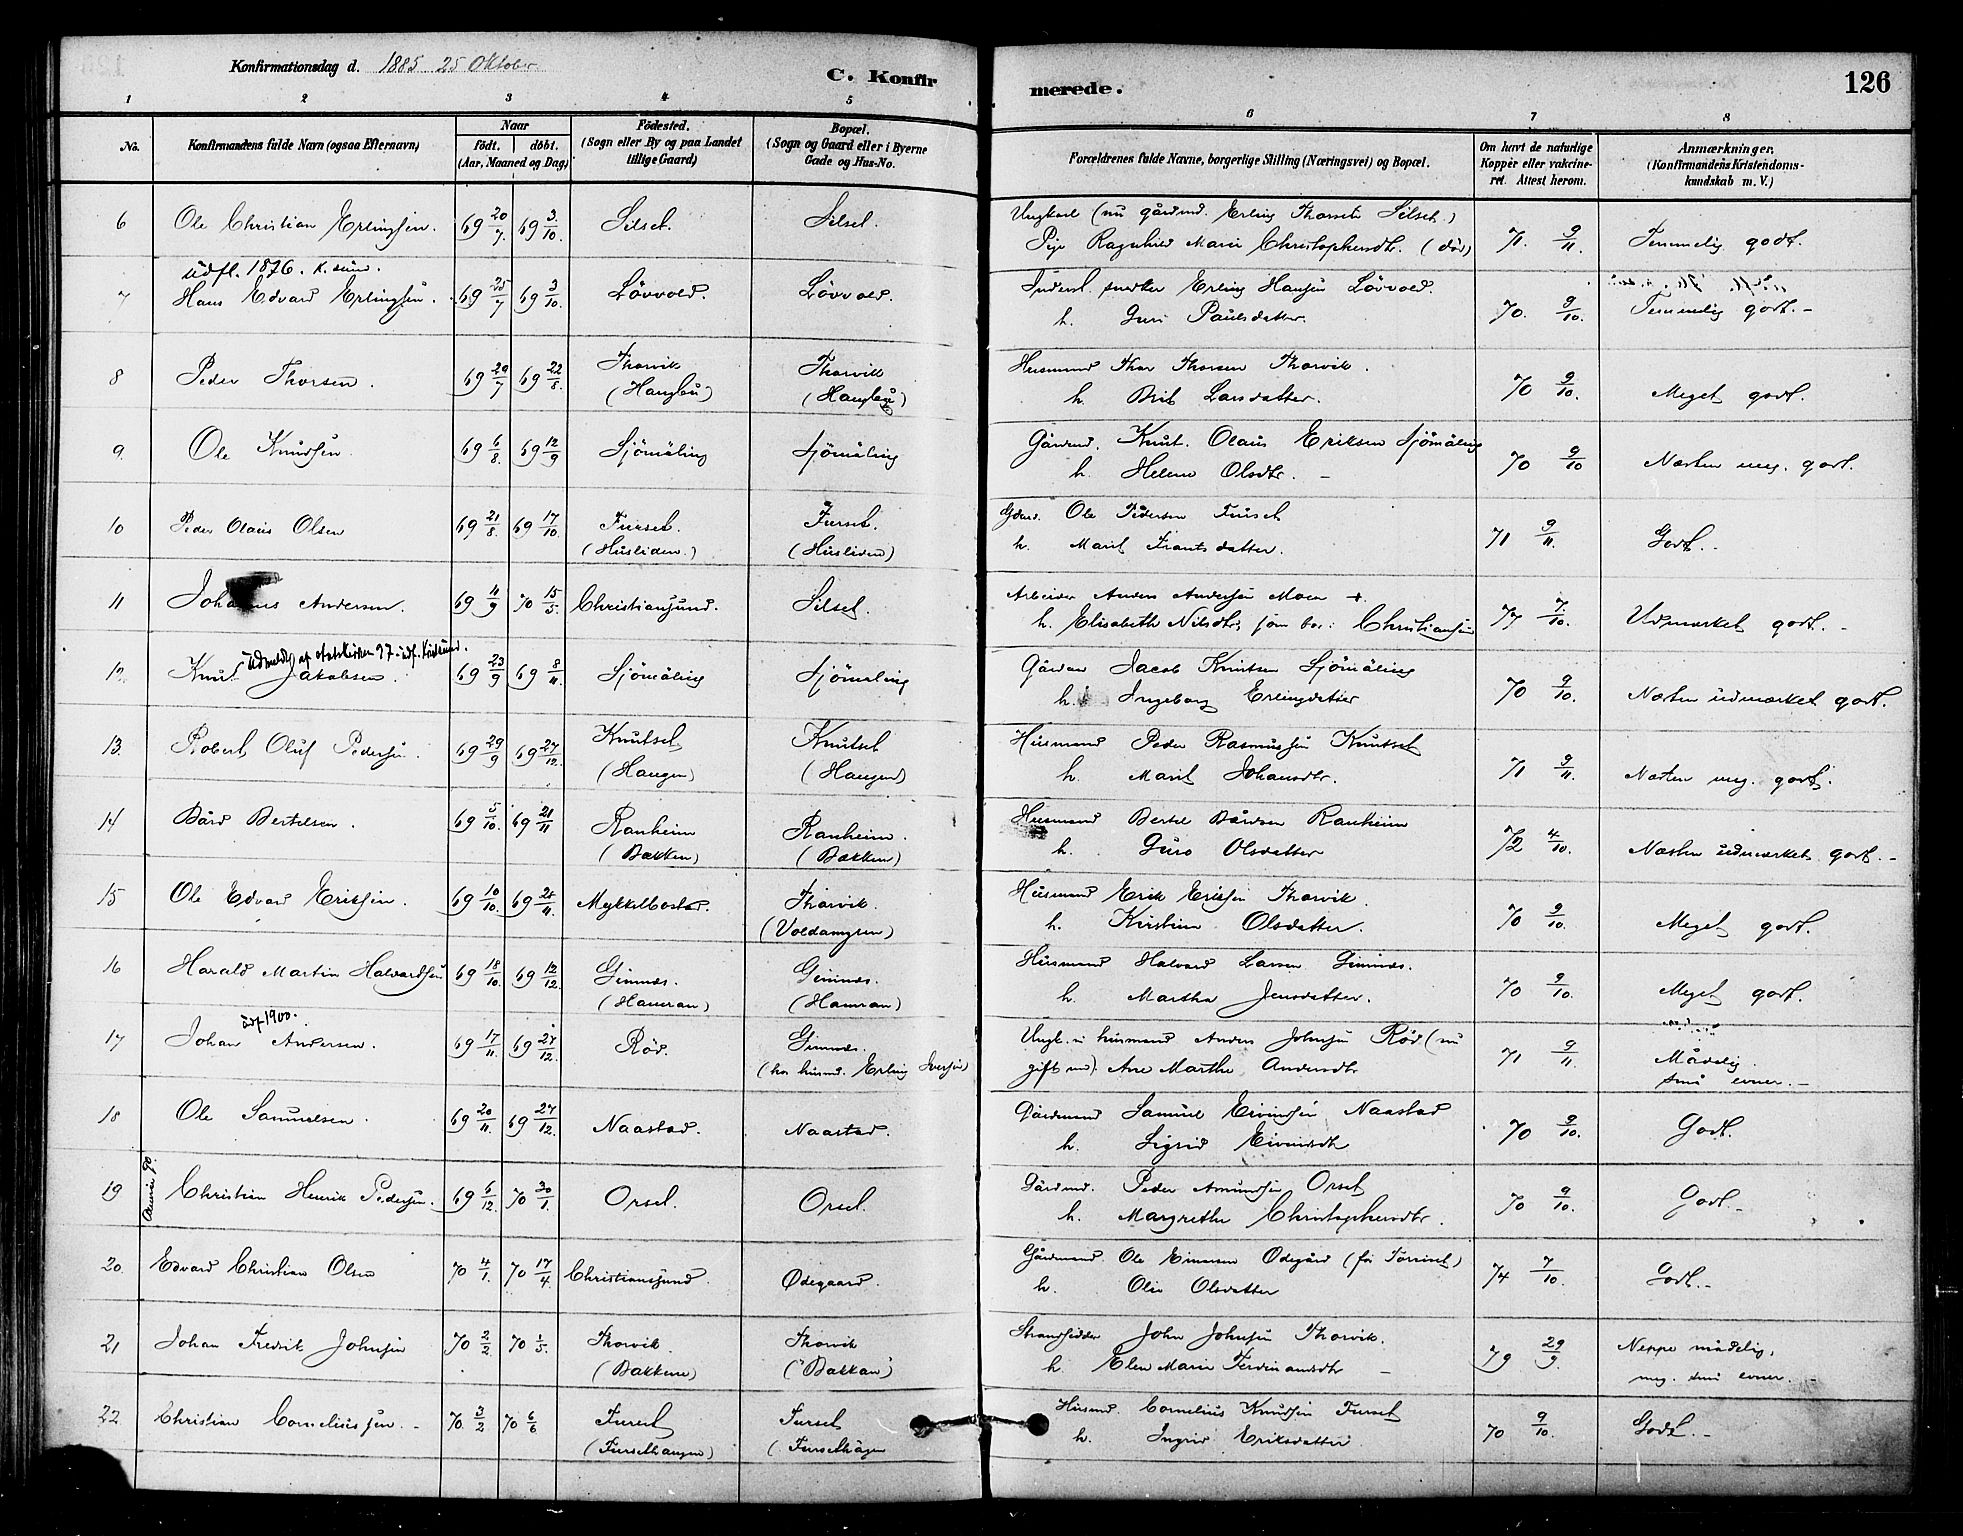 Konfirmationsdag d. 1885 25 Oktober
C. Konfirmerede.
126
1 2 3 4 5 6 7 8
No. Konfirmandens fulde Navn (ogsaa Efternavn) Naar født. døbt. (Aar, Maaned og Dag) Fødested. (Sogn eller By og paa Landet tillige Gaard) Bopæl. (Sogn og Gaard eller i Byerne Gade og Hus-No. Forældrenes fulde Navne, borgerlige Stilling (Næringsvei) og Bopæl. Om havt de naturlige Kopper eller vakcineret. Attest herom. Anmærkninger. (Konfirmandens Kristendomskundskab m. V.)
6 Ole Christian Erlingsen. 69 20/7 69 3/10. Silset. Silset. Ungkarl (nu gårdmd. Erling Silset.)
Pige Ragnhild Marie Christophersdtr. (død) 71. 9/11 Temmelig godt.
udfl. 1876. K.sund.
7 Hans Edvard Erlingsen. 69 25/7 69 3/10. Løvvold. Løvvold. Inderst. snedker Erling Hansen Løvvold.
h. Guri Paulsdatter. 70. 9/10. Temmelig godt. -
8 Peder Thorsen. 69 29/7 69 22/8. Thorvik (Hangbu) Thorvik (Hangbu) Husmand Thor Thorsen Thorvik.
h. Brit Larsdatter. 70 9/10. Meget godt.
9. Ole Knudsen. 69 6/8. 69 12/9 Sjømæling Sjømæling Gårdmd. Knut Olaus Eriksen Sjømæling
h. Helene Olsdtr. - 70 9/10 Næsten meg. godt.
10 Peder Olaus Olsen 69 21/8. 69 17/10. Furset. (Husliden.) Furset. (Husliden) Gdmd. Ole Pedersen Furset
h. Marit Frantsdatter. 71 9/11. Godt.
11 Johannes Andersen. 69 11/9 70 15/5. Christiansund. Silset. Arbeider Anders Andersen Moen +.
h. Elisabeth Nilsdtr, som bor i Christiansund 77 7/10. Udmærket godt.
Udmeldt af statskirken 97 udf. Kristsund.
12. Knut Jakobsen. 69 23/9 69 8/11. Sjømæling Sjømæling Gårdm Jacob Knutsen Sjømæling
h. Ingeborg Erlingsdatter 70 9/10. Næsten udmærket godt.
13. Robert Oluf Pedersen. 69 29/9 69 27/12. Knutset (Haugen) Knutset (Haugen) Husmand Peder Rasmussen Knutset
h. Marit Johansdtr. 71 9/11. Næsten meg. godt.
14 Bård Bertelsen. 69 5/10. 69 21/11 Ranheim (Bakken) Ranheim. (Bakken) Husmand Bertel Bårdsen Ranheim
h. Guro Olsdatter 72 4/10. Næsten udmærket godt. -
15 Ole Edvard Eriksen. 69 10/10. 69 24/11. Mykkelbostad. Thorvik. (Voldamyren) Husmand Erik Eriksen Thorvik.
h. Kirstine Olsdatter. 70 9/10. Meget godt.
16 Harald Martin Halvardsen 69 18/10. 69 12/12. Gimnæs. (Hamran) Gimnæs. (Hamran) Husmand Halvard Larsen Gimnæs.
h. Martha Jensdatter. 70 9/10. Meget godt.
udf. 1900.
17 Johan Andersen. 69 17/11. 69 27/12. Rød. Gimnæs. (hos husmd. Erling Iversen) Ungk. i husmand Anders Johnsen Rød (nu
gift md). Ane Marthe Andersdtr 71 9/11. Mådelig. små evner. -
18 Ole Samuelsen. 69 20/11. 69 27/12. Naastad. Naastad. Gårdmand Samuel Eivindsen Naastad
h. Sigrid Eivindsdtr 70 9/10. Godt.
19 Christian Henrik Pedersen. 69 6/12. 70 30/1. Orset. Orset. Gårdmd. Peder Amundsen Orset
h. Margrethe Christophersdtr. 70 9/10. Godt.
20. Edvard Christian Olsen 70 4/1. 70 17/4. Christiansund. Ødegaard. Gårdmand Ole Einarsen Ødegård (før Tørriset)
h. Olin Olsdatter 74 7/10. Godt. -
21 Johan Fredrik Johnsen 70 2/2. 70 1/5. Thorvik. (Bakken) Thorvik (Bakkan) Strandsidder John Johnsen Thorvik.
h. Elen Marie Ferdinandsdtr - 79 29/9. Neppe mådelig, meg. små evner. -
22. Christian Corneliussen. - 70. 3/2 70 6/6 Furset (Fursethaugen) Furset (Fursethågen Husmd. Cornelius Knudsen Furset
h. Ingrid Eriksdatter 70 9/10. Godt. -